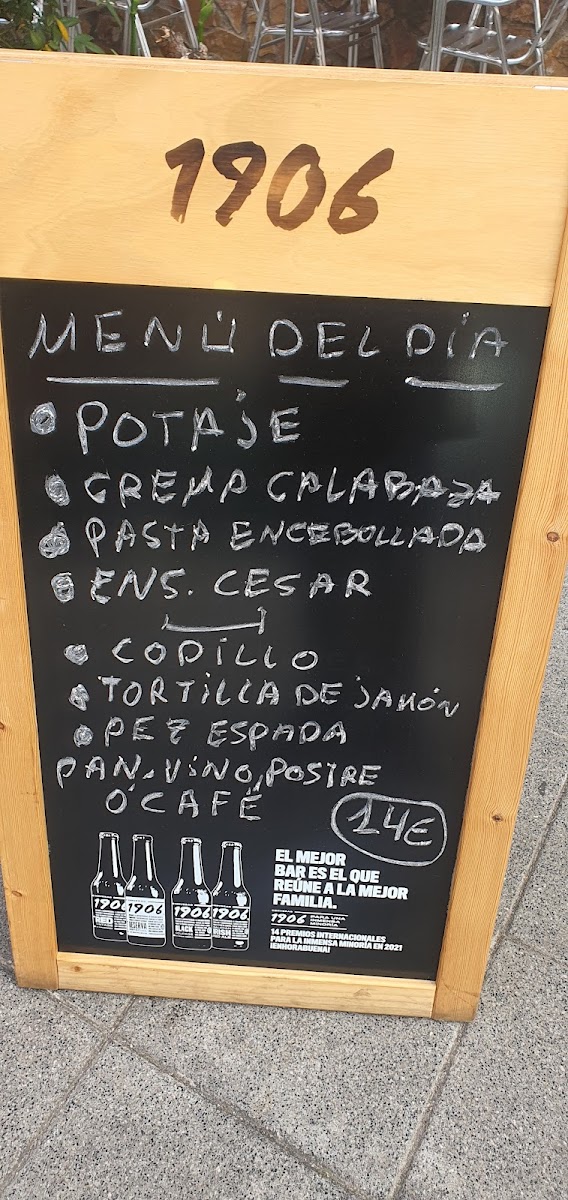 1906
MENÜ DEL DÍA
POTAJE
CREMA CALABAZA
PASTA ENCEBOLLADA
ENS. CESAR
CODILLO
TORTILLA DE JAMÓN
PEZ ESPADA
PAN, VINO, POSTRE
O'CAFË
14€
1906
RED
1906
RESERVA
1906
BLACK
1906
EL MEJOR
BAR ES EL QUE
REÚNE A LA MEJOR
FAMILIA.
1906 PARA UNA
INMENSA
MINORÍA
14 PREMIOS INTERNACIONALES
PARA LA INMENSA MINORÍA EN 2021
¡ENHORABUENA!